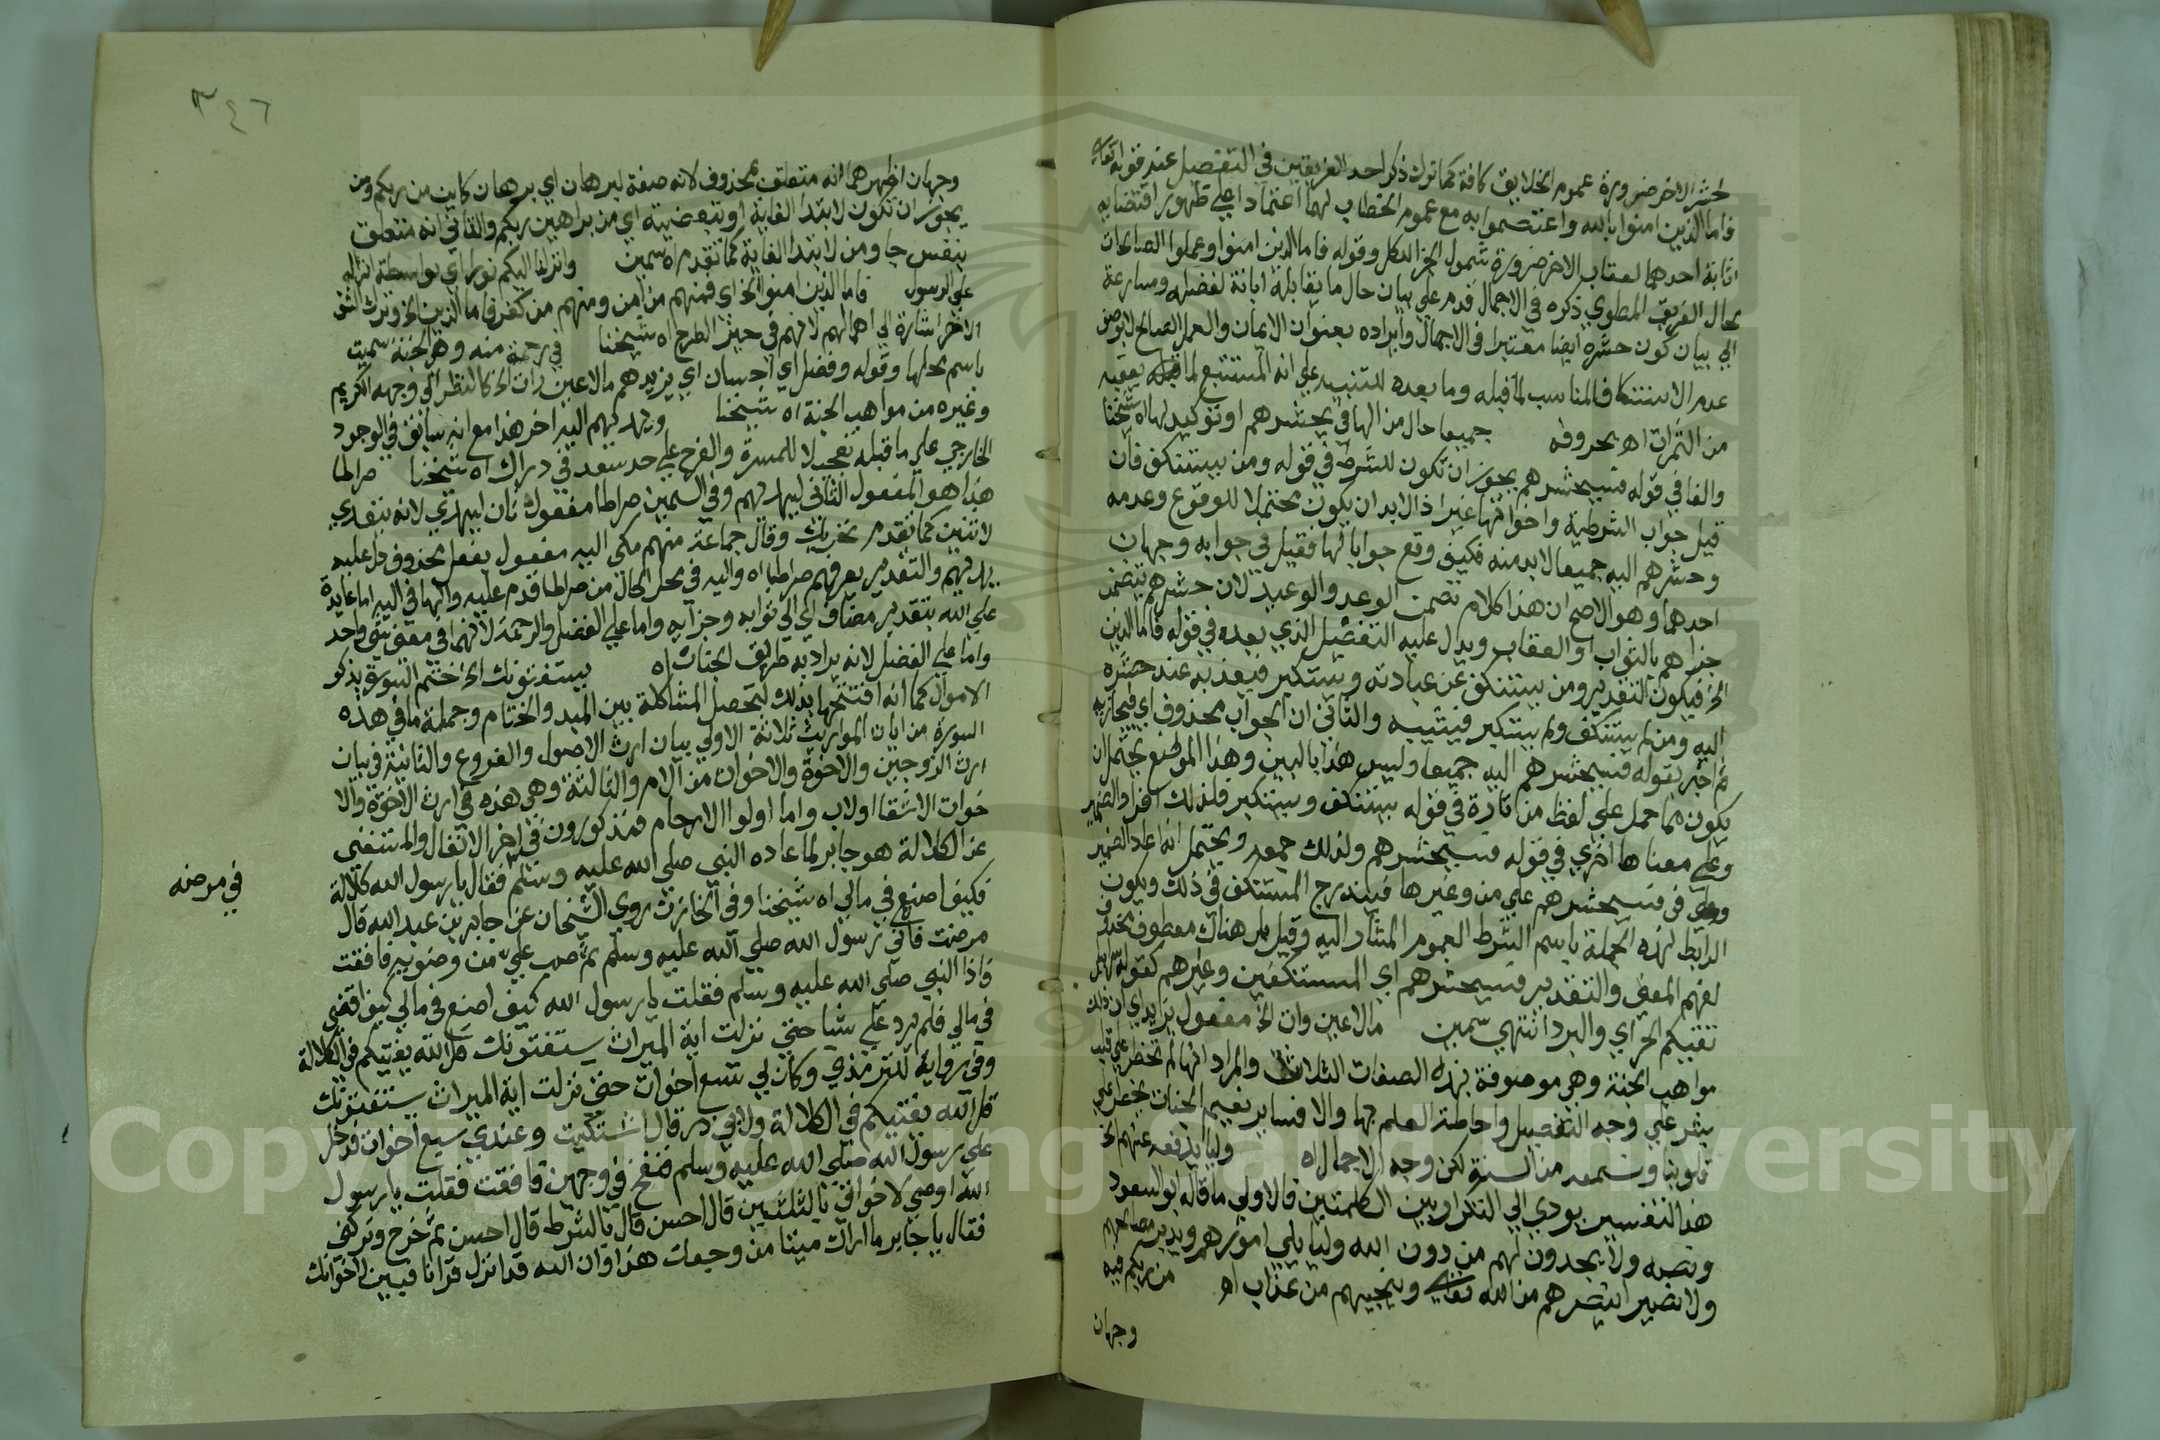 لحشر الاخر ضرورة عموم الخلايق كافة كما ترك ذكر احد الفريقين في التفصيل عند قوله تعالى
فاما الذين امنوا بالله واعتصموا به مع عموم الخطاب لهما اعتمادا على ظهور اقتضايه
اثابة احدهما لعقاب الاخر ضرورة شمول الجزا للكل وقوله فاما الذين امنوا وعملوا الصالحات
بحال الفريق المطوي ذكره في الاجمال قدم علي بيان حال ما يقابله ابانة لفضله ومسارعة
الي بيان كون حشره ايضا معتبرا في الاجمال وايراده بعنوان الايمان والعمل الصالح لا بوصف
عدم الاستنكاف المناسب لما قبله وما بعده للتنبيه علي انه المستتبع لما يعقبه
من الثمرات اه بحروفه جميعا حال من الها في يحشرهم او توكيد لها اه شيخنا
والفا في قوله فسيحشرهم يجوز ان تكون للشرط في قوله ومن يستنكف فان
قيل جواب الشرطية واخواتها غير اذا لابد ان يكون محتملا للوقوع وعدمه
وحشرهم اليه جميعا لابد منه فكيف وقع جوابا لها فقيل في جوابه وجهان
احدهما وهو الاصح ان هذا كلام تضمن الوعد والوعيد لان حشرهم يتضمن
جزاهم بالثواب او العقاب ويدل عليه التفصيل الذي بعده في قوله فاما الذين
الخ فيكون التقدير ومن يستنكف عن عبادته ويستكبر فيعذبه عند حشره
اليه ومن لم يستنكف ولم يستكبر فيثيبه والثاني ان الجواب محذوف اي فيجازيه
ثم اخبر بقوله فسيحشرهم اليه جميعا وليس هذا بالبين وهذا الموضع يحتمل ان
يكون مما حمل علي لفظ من تارة في قوله يستنكف ويستكبر فلذلك افرد الضمير
وعلي معناها اخري في قوله فسيحشرهم ولذلك جمعه ويحتمل انه اعاد الضمير
في فسيحشرهم علي من وغيرها فيندرج المستنكف في ذلك ويكون
الرابط لهذه الجملة باسم الشرط العموم المشار اليه وقيل بل هناك معطوف محذوف
لفهم المعني والتقدير فسيحشرهم اي المستنكفين وغيرهم كقوله سرابيل
تقيكم الحر اي والبرد انتهي سمين مالا عين رات الخ مفعول يزيد اي ان ذلك
مواهب الجنة وهي موصوفة بهذه الصفات الثلاث والمراد انها لم تخطر علي قلب
بشر علي وجه التفصيل واحاطة العلم بها والا فساير نعيم الجنان يخطر علي
قلوبنا ونسمعه من السنة لكن وجه الاجمال اه وليا يدفعه عنهم الخ
هذا التفسير يودي الي التكرار بين الكلمتين فالاولي ما قاله ابو السعود
ونصه ولا يجدون لهم من دون الله وليا يلي امورهم ويدبر مصالحهم
ولا نصيرا ينصرهم من الله تعالي وينجيهم من عذاب اه من ربكم فيه
وجهان
٣٤٦
وجهان اظهرهما انه متعلق بمحذوف لانه صفة لبرهان اي برهان كاين من ربكم ومن
يجوز ان تكون لابتدا الغاية او تبعيضية اي من براهين ربكم والثاني انه متعلق
بنفس جا ومن لابتدا الغاية كما تقدم اه سمين وانزلنا اليكم نورا اي بواسطة انزاله
علي الرسول فاما الذين امنوا الخ اي فمنهم من امن ومنهم من كفر فاما الذين الخ وترك الشق
الاخر اشارة الي اهمالهم لانهم في حيز الطرح اه شيخنا في رحمة منه وهي الجنة سميت
باسم محلها وقوله وفضل اي احسان اي يزيدهم مالا عين رات الخ كالنظر الي وجهه الكريم
وغيره من مواهب الجنة اه شيخنا ويهديهم اليه اخر هذا مع انه سابق في الوجود
الخارجي علي ما قبله تعجيلا للمسرة والفرح علي حد سعد في دارك اه شيخنا صراطا
هذا هو المفعول الثاني ليهديهم وفي السمين صراطا مفعول ثان ليهدي لانه يتعدي
لاثنين كما تقدم تحريره وقال جماعة منهم مكي انه مفعول بفعل محذوف دل عليه
يهديهم والتقدير يعرفهم صراطا اه واليه في محل الحال من صراطا قدم عليه والها في اليه اما عايدة
علي الله بتقدير مضاف اي الي ثوابه وجزآيه واما علي الفضل والرحمة لانهما في معني شي واحد
واما علي الفضل لانه يراد به طريق الجنات اه يستفتونك الخ اختتم السورة بذكر
الاموال كما انه افتتحها بذلك لتحصل المشاكلة بين المبدء والختام وجملة ما في هذه
السورة من ايات المواريث ثلاثة الاولي بيان ارث الاصول والفروع والثانية في بيان
ارث الزوجين والاخوة والاخوات من الام والثالثة وهي هذه في ارث الاخوة والا
خوات الاشقا اولاب واما اولوا الارحام فمذكورون في اخر الانفال والمستفتي
عن الكلالة هو جابر لما عاده النبي صلي الله عليه وسلم فقال يا رسول الله كلالة
فكيف اصنع في مالي اه شيخنا وفي الخازن روي الشيخان عن جابر بن عبد الله قال
مرضت فاتي رسول الله صلي الله عليه وسلم ثم صب علي من وضويه فافقت
فاذا النبي صلي الله عليه وسلم فقلت يا رسول الله كيف اصنع في مالي كيف اقضي
في مالي فلم يرد علي شيا حتي نزلت اية الميراث يستفتونك قل الله يفتيكم في الكلالة
وفي رواية للترمذي وكان لي تسع اخوات حتي نزلت اية الميراث يستفتونك
قل الله يفتيكم في الكلالة ولابي در قال اشتكيت وعندي سبع اخوات فدخل
علي رسول الله صلي الله عليه وسلم فنفخ في وجهي فافقت فقلت يا رسول
الله اوصي لاخواتي بالثلثين قال احسن قال بالشرط قال احسن ثم خرج وتركني
فقال يا جابر ما اراك ميتا من وجعك هذا وان الله قد انزل قرانا فبين لاخواتك
في مرضه
Copyright © King Saud University